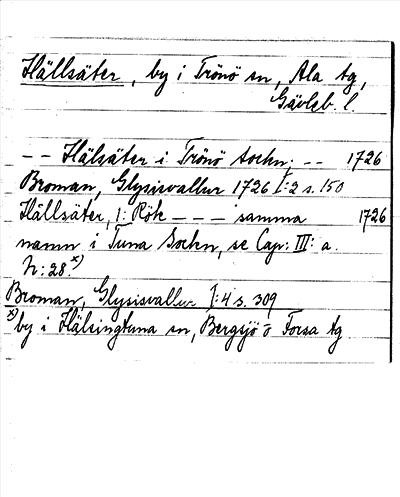 Hällsäter, by i Trönö sn, Ala tg,
Gävleb. l.
-- Hälsäter i Trönö Sockn; -- 1726
Broman, Glysisvallur 1726 I:2 s. 150
Hällsäter, 1: Rök --- samma 1726
namn i Tuna Sockn, se Cap: III: a.
N: 28.x)
Broman, Glysisvallur I:4 s. 309
x) by i Hälsingtuna sn, Bergsjö o Forsa tg